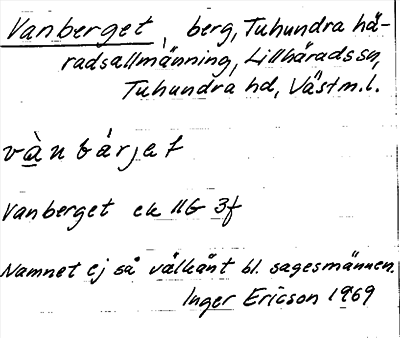 Vanberget, berg, Tuhundra hä-
radsallmänning, Lillhärads sn,
Tuhundra hd, Västm. l.
và̠nbärjet
Vanberget ek 11G 3f
Namnet ej så välkänt bl. sagesmännen.
Inger Ericson 1969